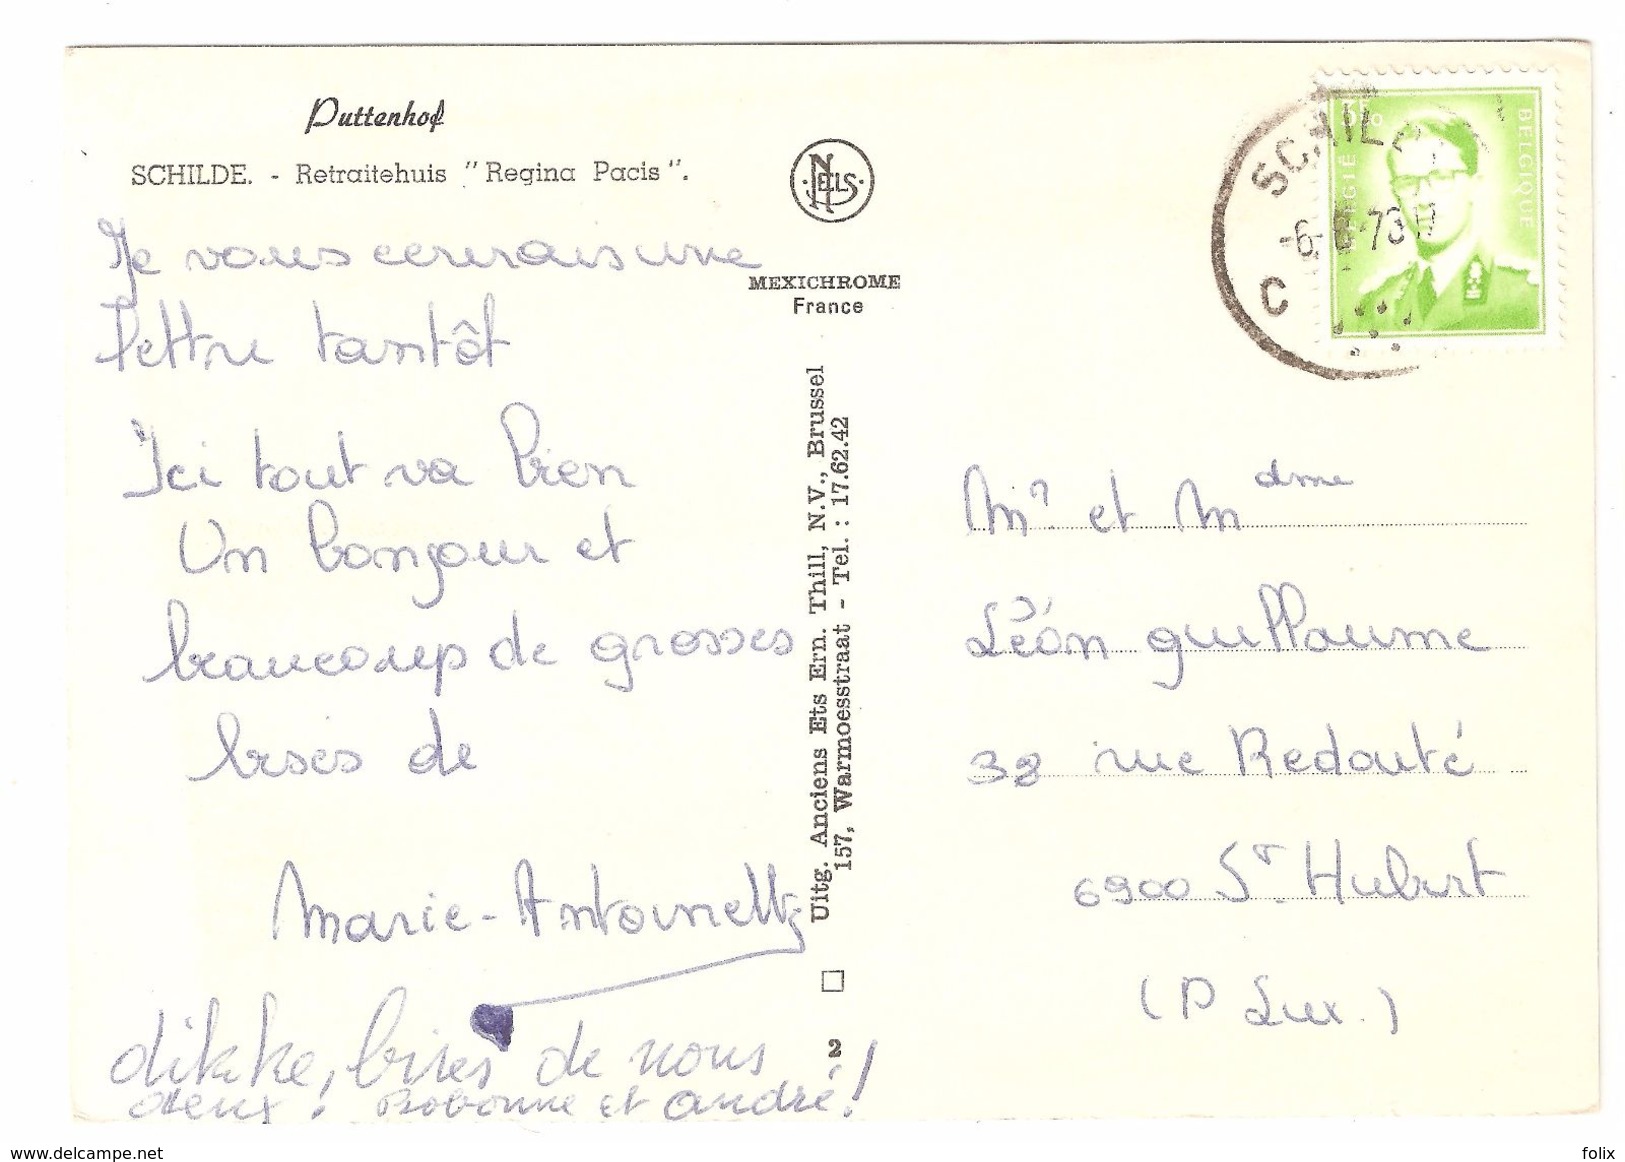 Puttenhof
SCHILDE. - Retraitehuis "Regina Pacis".
Je vous
lettre tantôt
Ici tout va bien
Un bonjour et
beaucoup de grosses
bises de
Marie-Antoinette
dikke, bises de nous
deux! Bobonne et andré!
NELS
MEXICHROME
France
Uitg. Anciens Ets Ern. Thill, N.V., Brussel
157, Warmoesstraat - Tel. : 17.62.42
2
3F50
BELGIË
BELGIQUE
SCHILDE
-6-
C
Mr et Mdme
Léon guillaume
38 rue Redouté
6900 St. Hubert
(P Lux.)
delcampe.net
felix